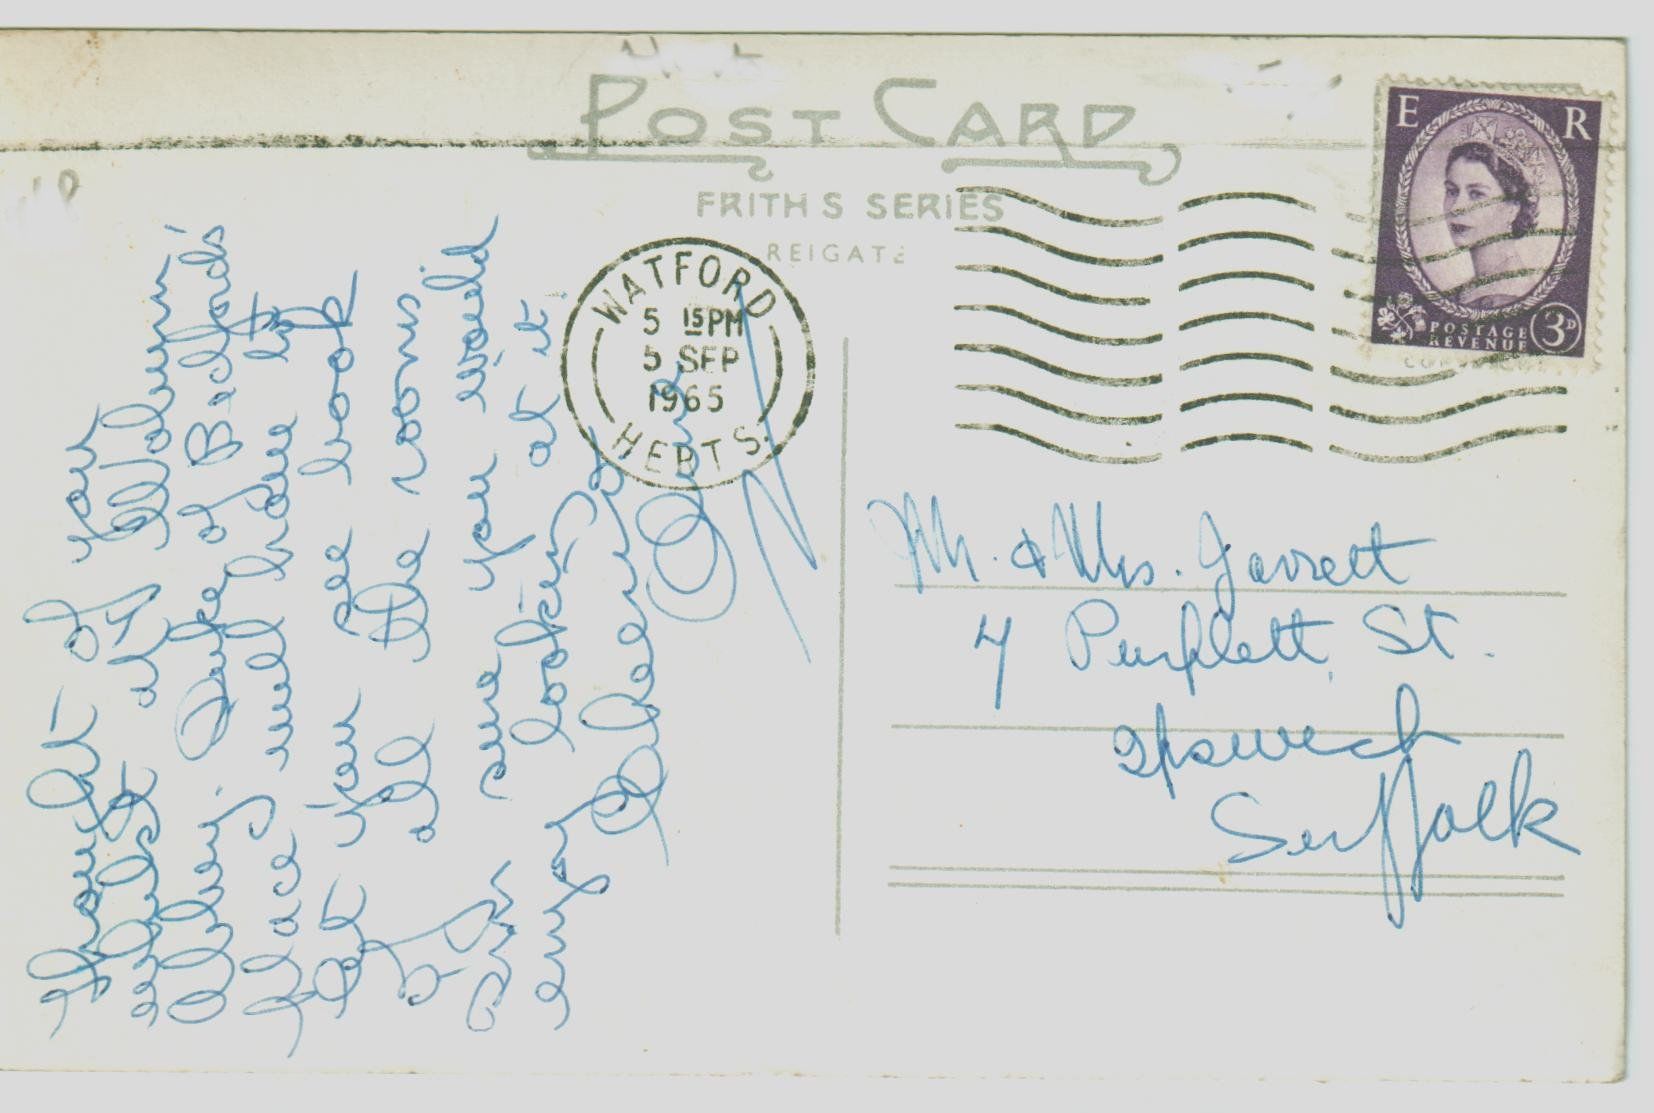 POST CARD
FRITH'S SERIES
REIGATE
E R
POSTAGE
REVENUE
3D
WATFORD
5 15PM
5 SEP
1965
HERTS.
Thought of you
whilst at Woburn
Abbey. Duke of Bedford's
place will have to
let you see book
of all the rooms
Am sure you would
enjoy looking at it.
Cheerio
Mr. & Mrs. Garrett
7 Purplett St.
Ipswich
Suffolk